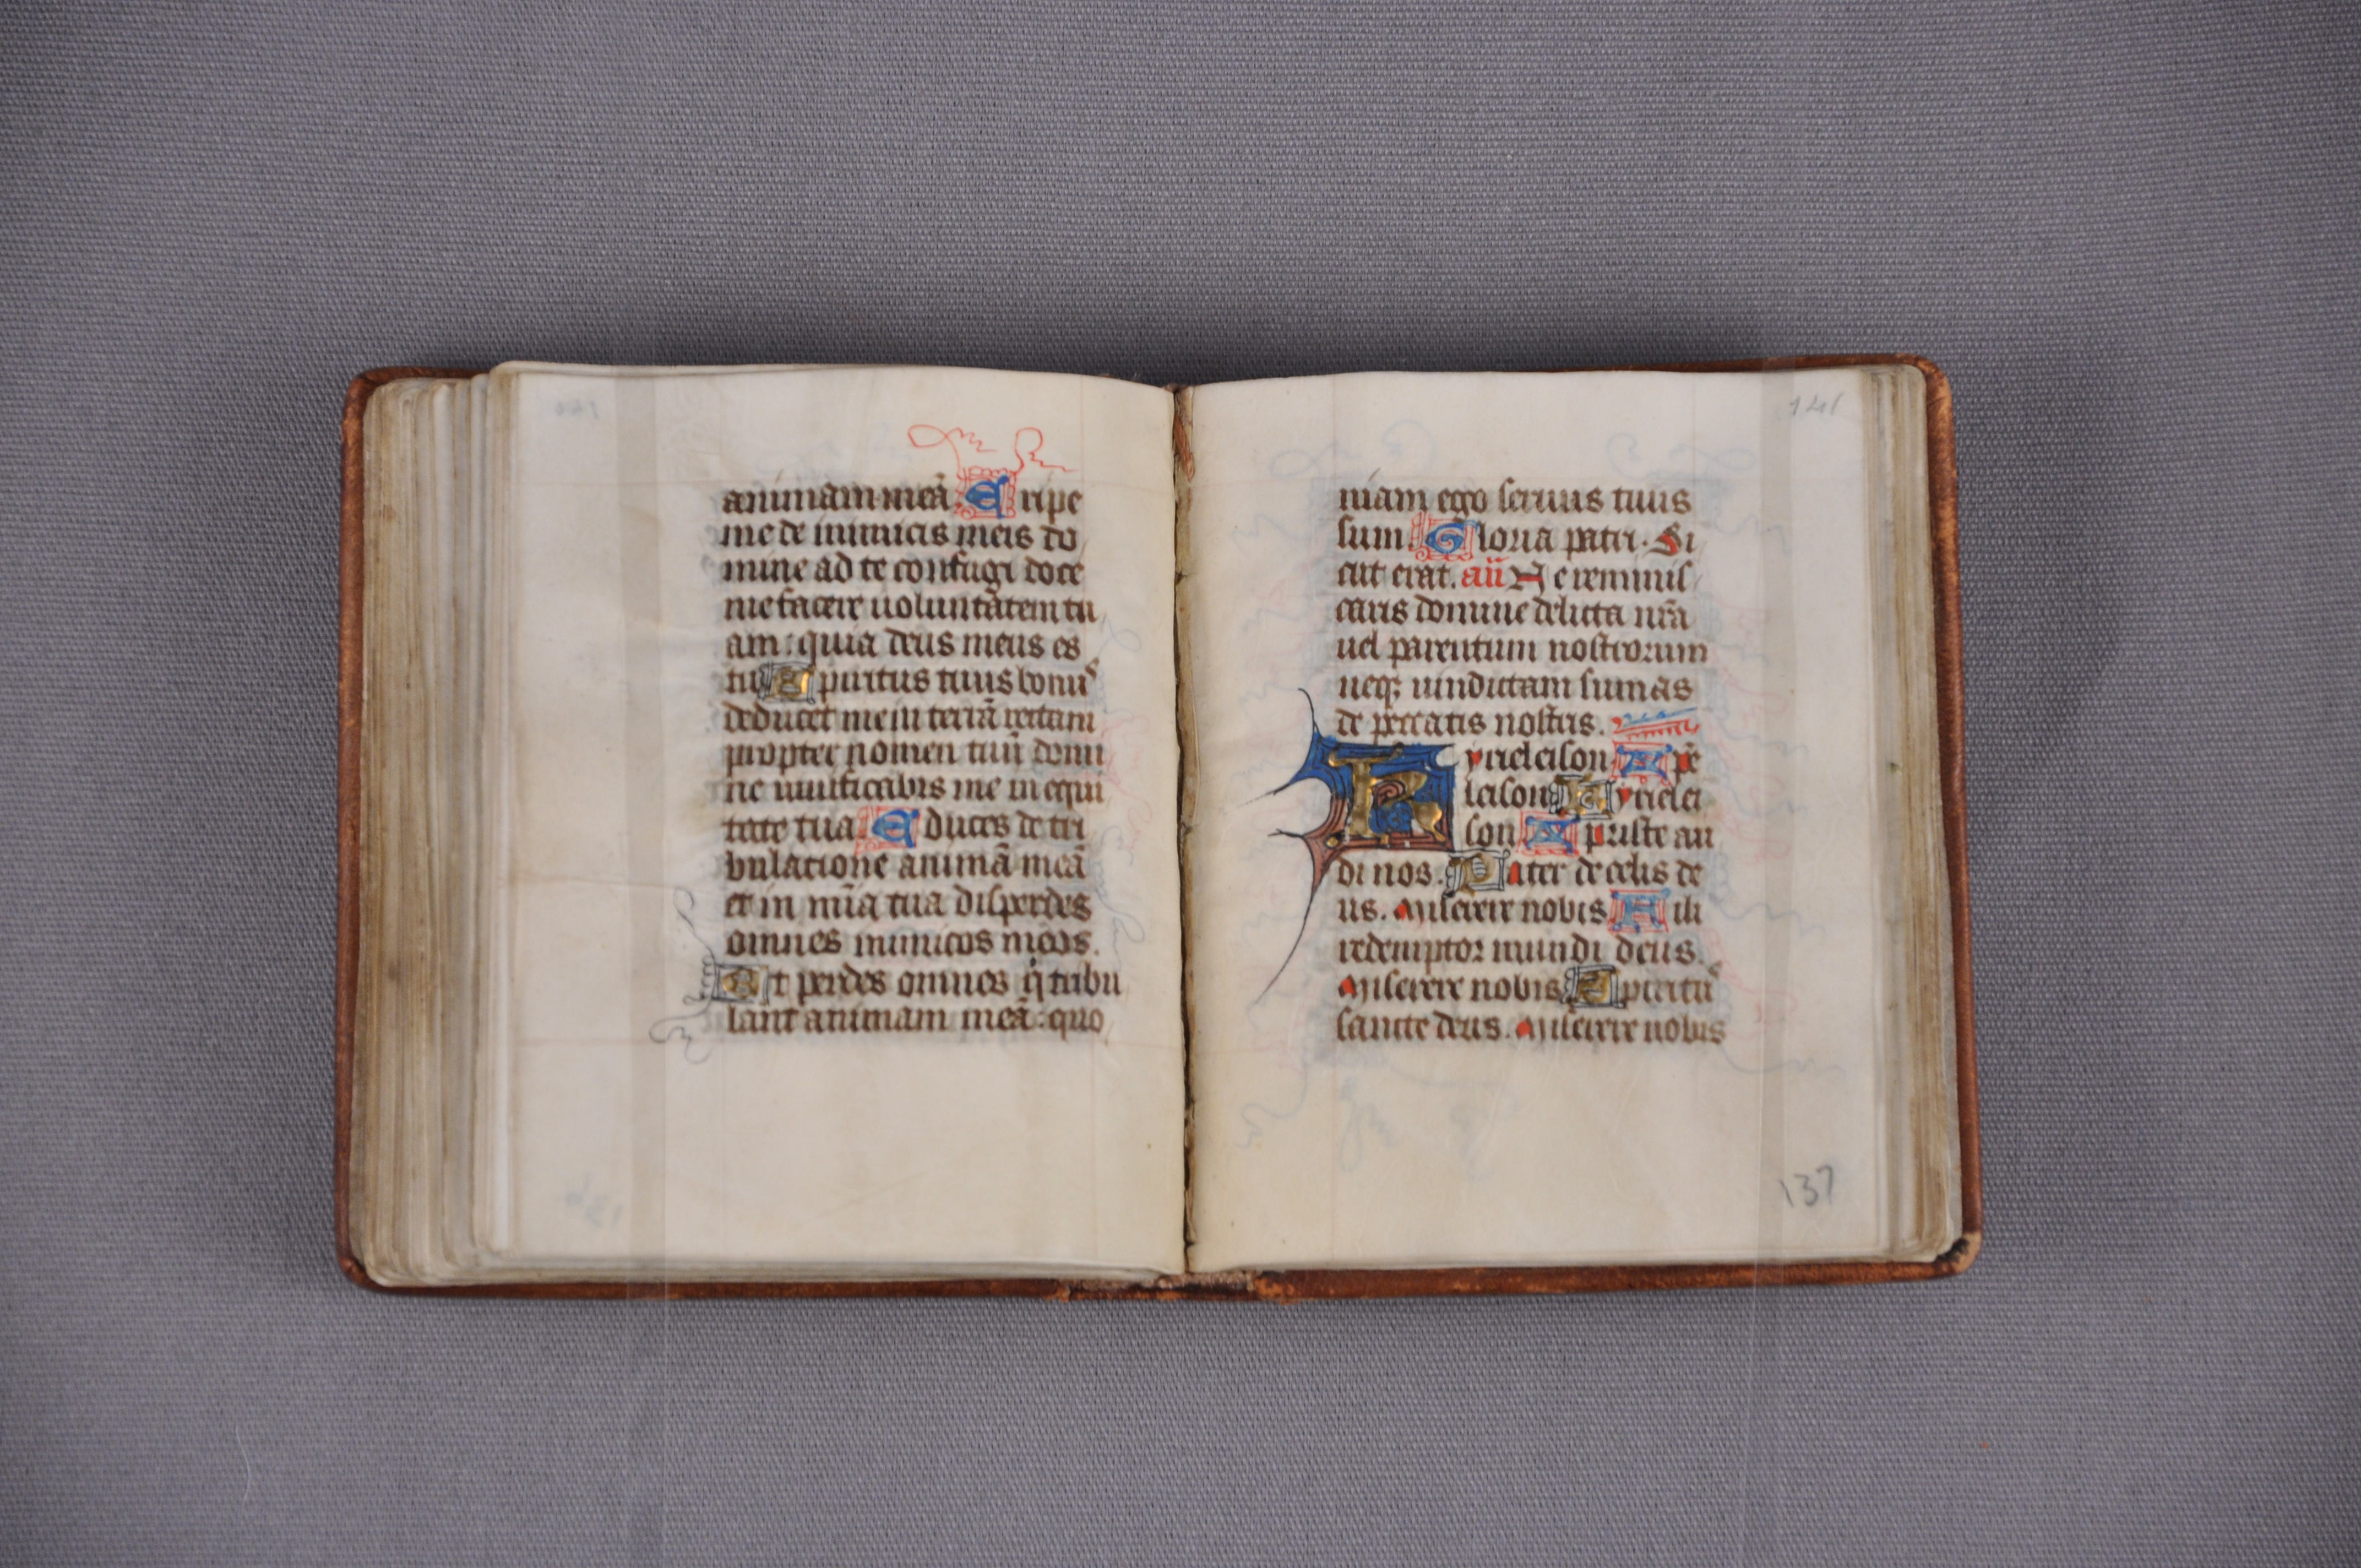 animam meā. Eripe
me de inimicis meis do
mine ad te confugi doce
me facere uoluntatem tu
am: quia deus meus es
tu Spiritus tuus bonus
deducet me in terrā rectam
propter nomen tuū domi
ne uiuificabis me in equi
tate tua. Educes de tri
bulacione animā meā
et in mīa tua disperdes
omnes inimicos meos.
Et perdes omnes q̄ tribu
lant animam meā: quo
141
niam ego seruus tuus
sum. Gloria patri. Si
cut erat. añ Ne reminis
caris domine delicta nr̄a
uel parentum nostrorum
neq; uindictam sumas
de peccatis nostris.
Kyrieleison Xpē
leison Kyrielei
son Xpriste au
di nos. Pater de celis de
us. Miserere nobis Fili
redemptor mundi deus.
Miserere nobis Spiritus
sancte deus. Miserere nobis
137